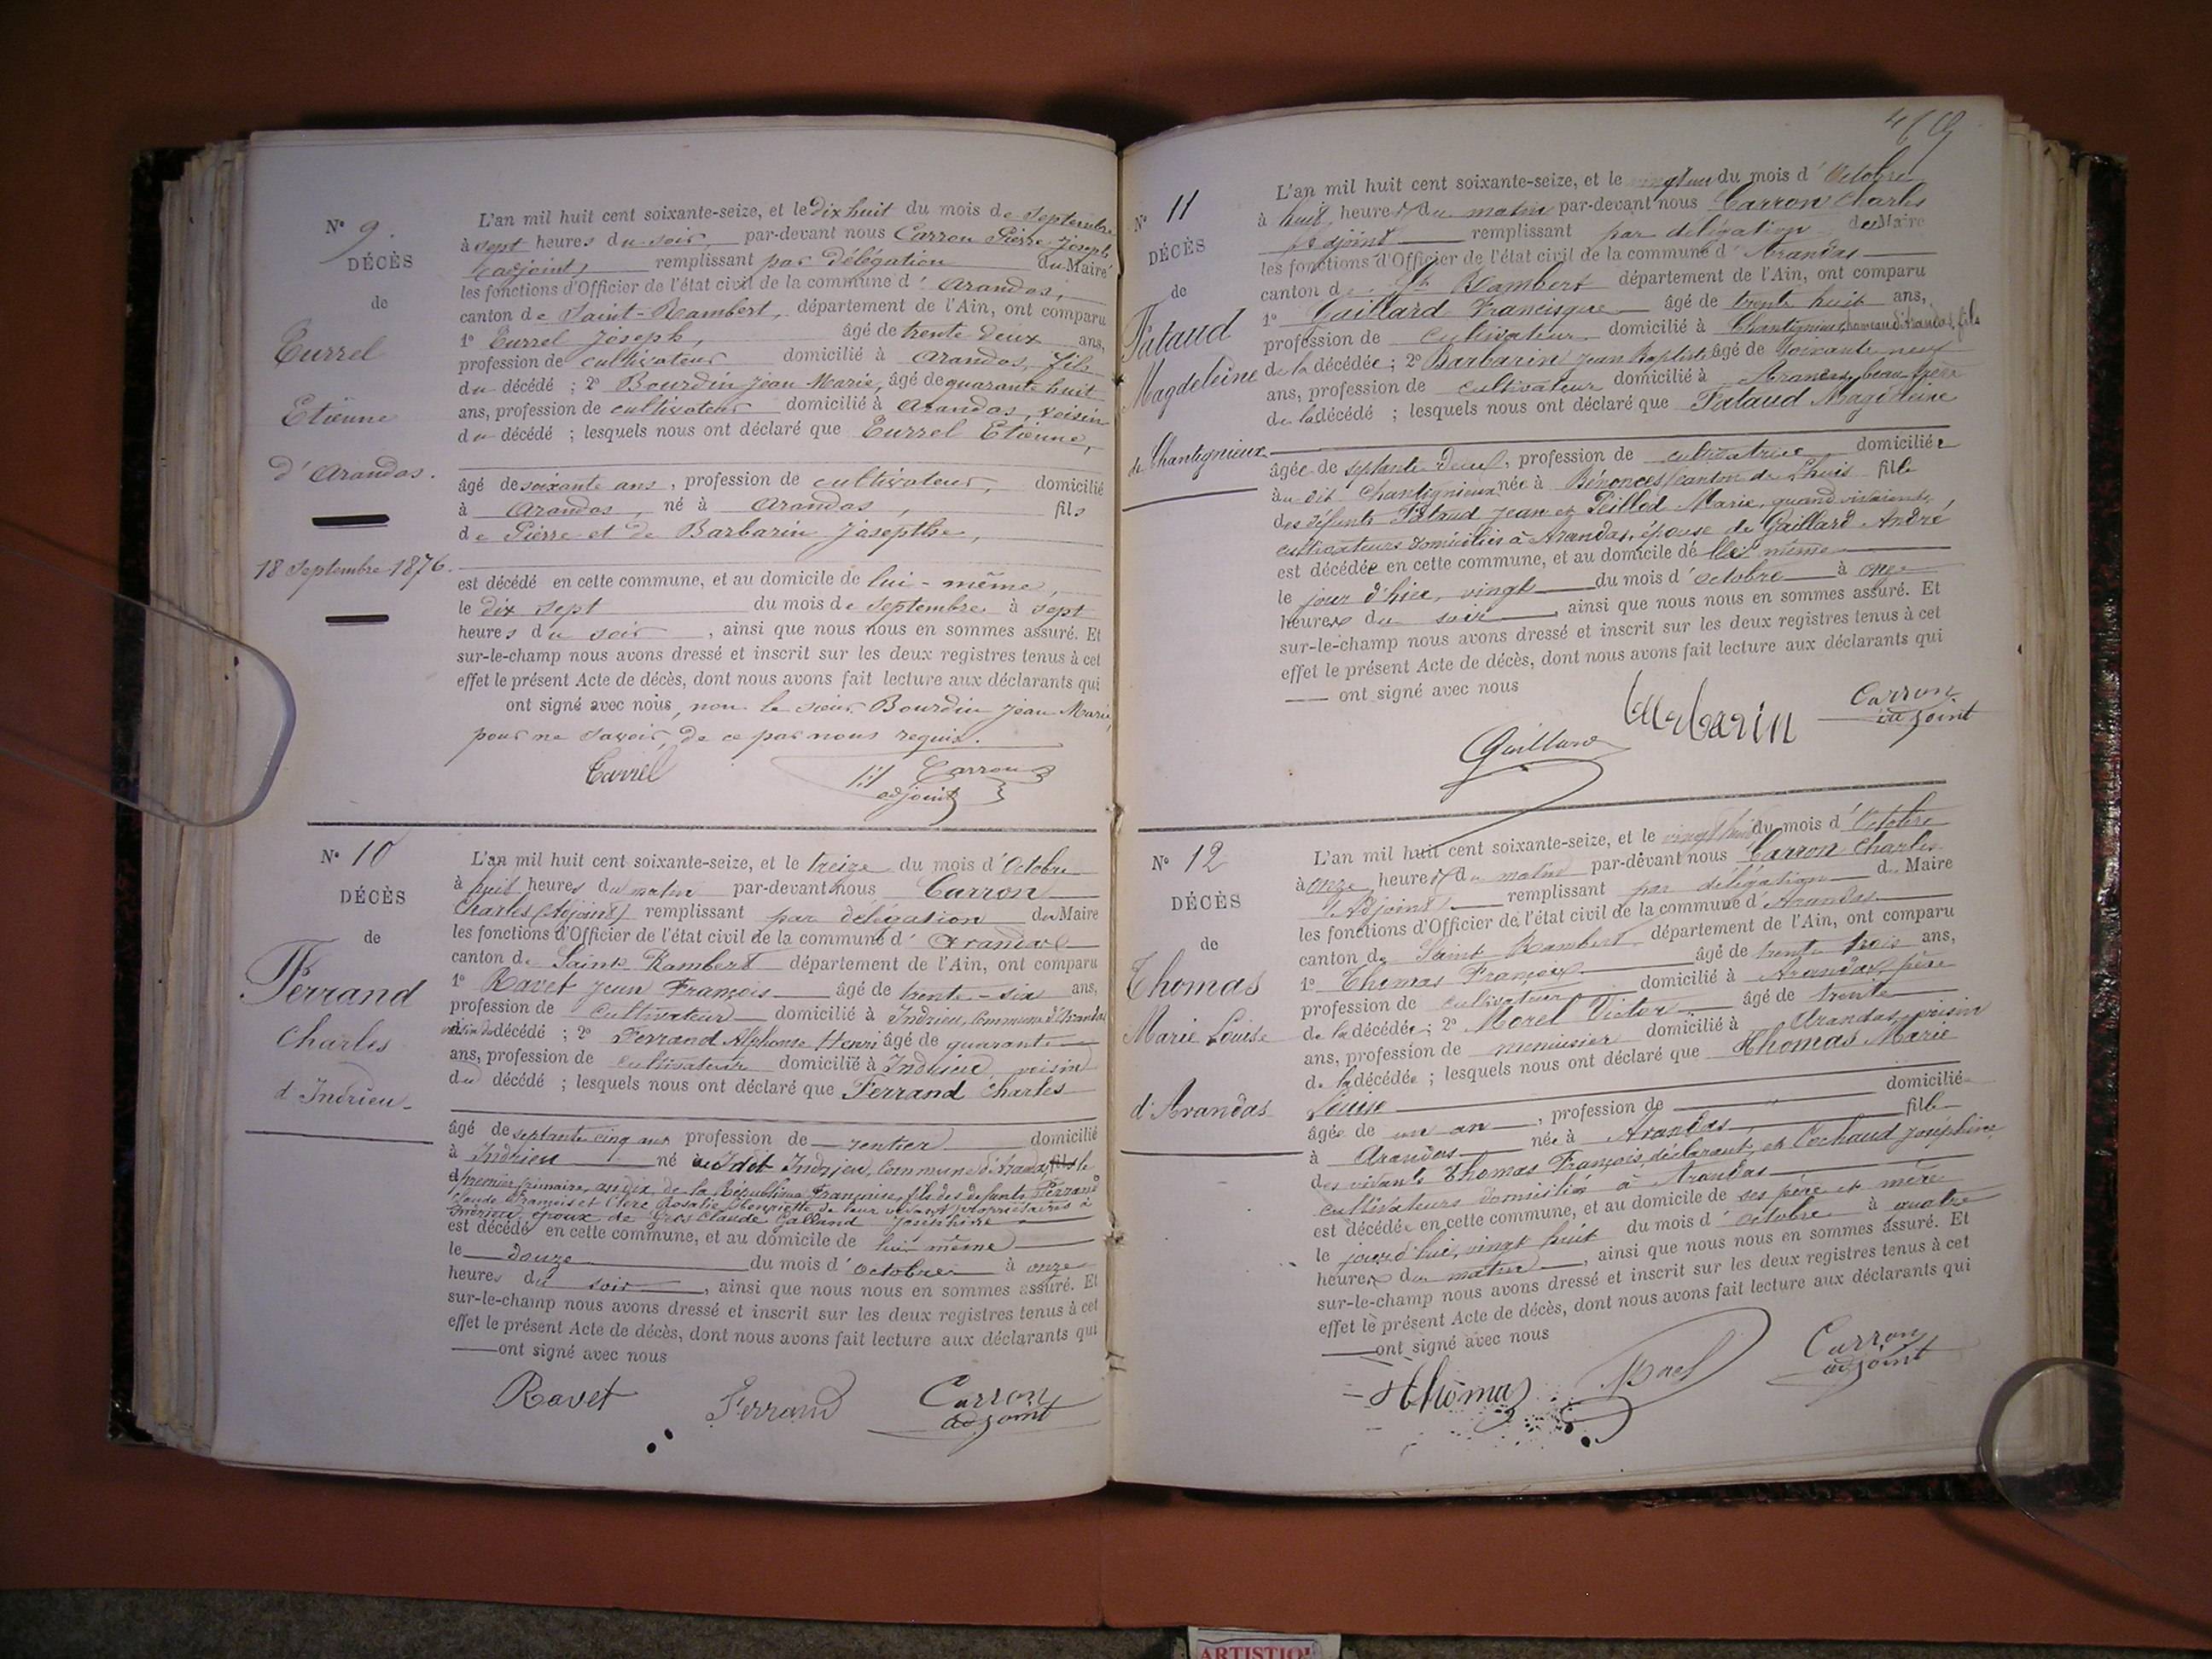 N° 9.
DÉCÈS
de
Currel
Etienne
d'Arandas.
18 Septembre 1876.
L'an mil huit cent soixante-seize, et le Dix huit du mois de Septembre
à sept heures du soir, par-devant nous Carron Pierre Joseph
(adjoint) remplissant par Délégation du Maire
les fonctions d'Officier de l'état civil de la commune d'Arandas,
canton de Saint-Rambert, département de l'Ain, ont comparu
1° Currel Joseph, âgé de trente deux ans,
profession de cultivateur domicilié à Arandas, fils
du décédé ; 2° Bourdin Jean Marie, âgé de quarante huit
ans, profession de cultivateur domicilié à Arandas, voisin
du décédé ; lesquels nous ont déclaré que Currel Etienne,
âgé de soixante ans, profession de cultivateur, domicilié
à Arandas, né à Arandas, fils
de Pierre et de Barbarin Josepthe,
est décédé en cette commune, et au domicile de lui-même,
le dix sept du mois de Septembre à sept
heures du soir, ainsi que nous nous en sommes assuré. Et
sur-le-champ nous avons dressé et inscrit sur les deux registres tenus à cet
effet le présent Acte de décès, dont nous avons fait lecture aux déclarants qui
ont signé avec nous, non le sieur Bourdin Jean Marie,
pour ne savoir, de ce par nous requis.
Currel Carron
adjoint
N° 10
DÉCÈS
de
Ferrand
Charles
d'Indrieu
L'an mil huit cent soixante-seize, et le treize du mois d'Octobre
à huit heures du matin par-devant nous Carron
Charles (Adjoint) remplissant par délégation du Maire
les fonctions d'Officier de l'état civil de la commune d'Arandas
canton de Saint Rambert département de l'Ain, ont comparu
1° Ravet Jean François âgé de trente-six ans,
profession de Cultivateur domicilié à Indrieu, Commune d'Arandas
voisin du décédé ; 2° Ferrand Alphonse Henri âgé de quarante
ans, profession de cultivateur domicilié à Indrieu, voisin
du décédé ; lesquels nous ont déclaré que Ferrand Charles
âgé de septante cinq ans profession de rentier domicilié
à Indrieu né au dit Indrieu, Commune d'Arandas fils le
premier frimaire, an dix, de la République Française, fils des défunts Ferrand
Claude François et Clerc Rosalie Henriette de leur vivant propriétaires à
Indrieu, époux de Claude Galland Joséphine
est décédé en cette commune, et au domicile de lui même
le douze du mois d'octobre à onze
heures du soir, ainsi que nous nous en sommes assuré. Et
sur-le-champ nous avons dressé et inscrit sur les deux registres tenus à cet
effet le présent Acte de décès, dont nous avons fait lecture aux déclarants qui
ont signé avec nous
Ravet Ferrand Carron
adjoint
N° 11
DÉCÈS
de
Pataud
Magdeleine
de Chantignieux
L'an mil huit cent soixante-seize, et le vingt un du mois d'Octobre
à huit heures du matin par-devant nous Carron Charles
(Adjoint) remplissant par délégation du Maire
les fonctions d'Officier de l'état civil de la commune d'Arandas
canton de St Rambert département de l'Ain, ont comparu
1° Gaillard Francisque âgé de trente huit ans,
profession de Cultivateur domicilié à Chantignieux, hameau d'Arandas, fils
de la décédée ; 2° Barbarin Jean Baptiste âgé de soixante neuf
ans, profession de cultivateur domicilié à Arandas, beau frère
de la décédé ; lesquels nous ont déclaré que Pataud Magdeleine
âgée de septante deux, profession de cultivatrice domiciliée
au dit Chantignieux née à Bénonces, canton de Lhuis fille
des défunts Pataud Jean et Peillod Marie, quand vivaient,
cultivateurs domiciliés à Arandas, épouse de Gaillard André
est décédée en cette commune, et au domicile de lui même
le jour d'hier, vingt du mois d'octobre à onze
heures du soir, ainsi que nous nous en sommes assuré. Et
sur-le-champ nous avons dressé et inscrit sur les deux registres tenus à cet
effet le présent Acte de décès, dont nous avons fait lecture aux déclarants qui
ont signé avec nous
Gaillard Barbarin Carron
adjoint
N° 12
DÉCÈS
de
Thomas
Marie Louise
d'Arandas
L'an mil huit cent soixante-seize, et le vingt huit du mois d'Octobre
à onze heures du matin par-devant nous Carron Charles
(Adjoint) remplissant par délégation du Maire
les fonctions d'Officier de l'état civil de la commune d'Arandas
canton de Saint Rambert département de l'Ain, ont comparu
1° Thomas François âgé de trente trois ans,
profession de cultivateur domicilié à Arandas, père
de la décédée ; 2° Morel Victor âgé de trente
ans, profession de menuisier domicilié à Arandas, voisin
de la décédée ; lesquels nous ont déclaré que Thomas Marie
Louise
âgée de un an, profession de domiciliée
à Arandas née à Arandas, fille
des vivants Thomas François, déclarant, et Cochaud Joséphine,
cultivateurs domiciliés à Arandas
est décédée en cette commune, et au domicile de ses père et mère
le jour d'hui, vingt huit du mois d'octobre à quatre
heures du matin, ainsi que nous nous en sommes assuré. Et
sur-le-champ nous avons dressé et inscrit sur les deux registres tenus à cet
effet le présent Acte de décès, dont nous avons fait lecture aux déclarants qui
ont signé avec nous
Thomas Morel Carron
adjoint
ARTISTIQ